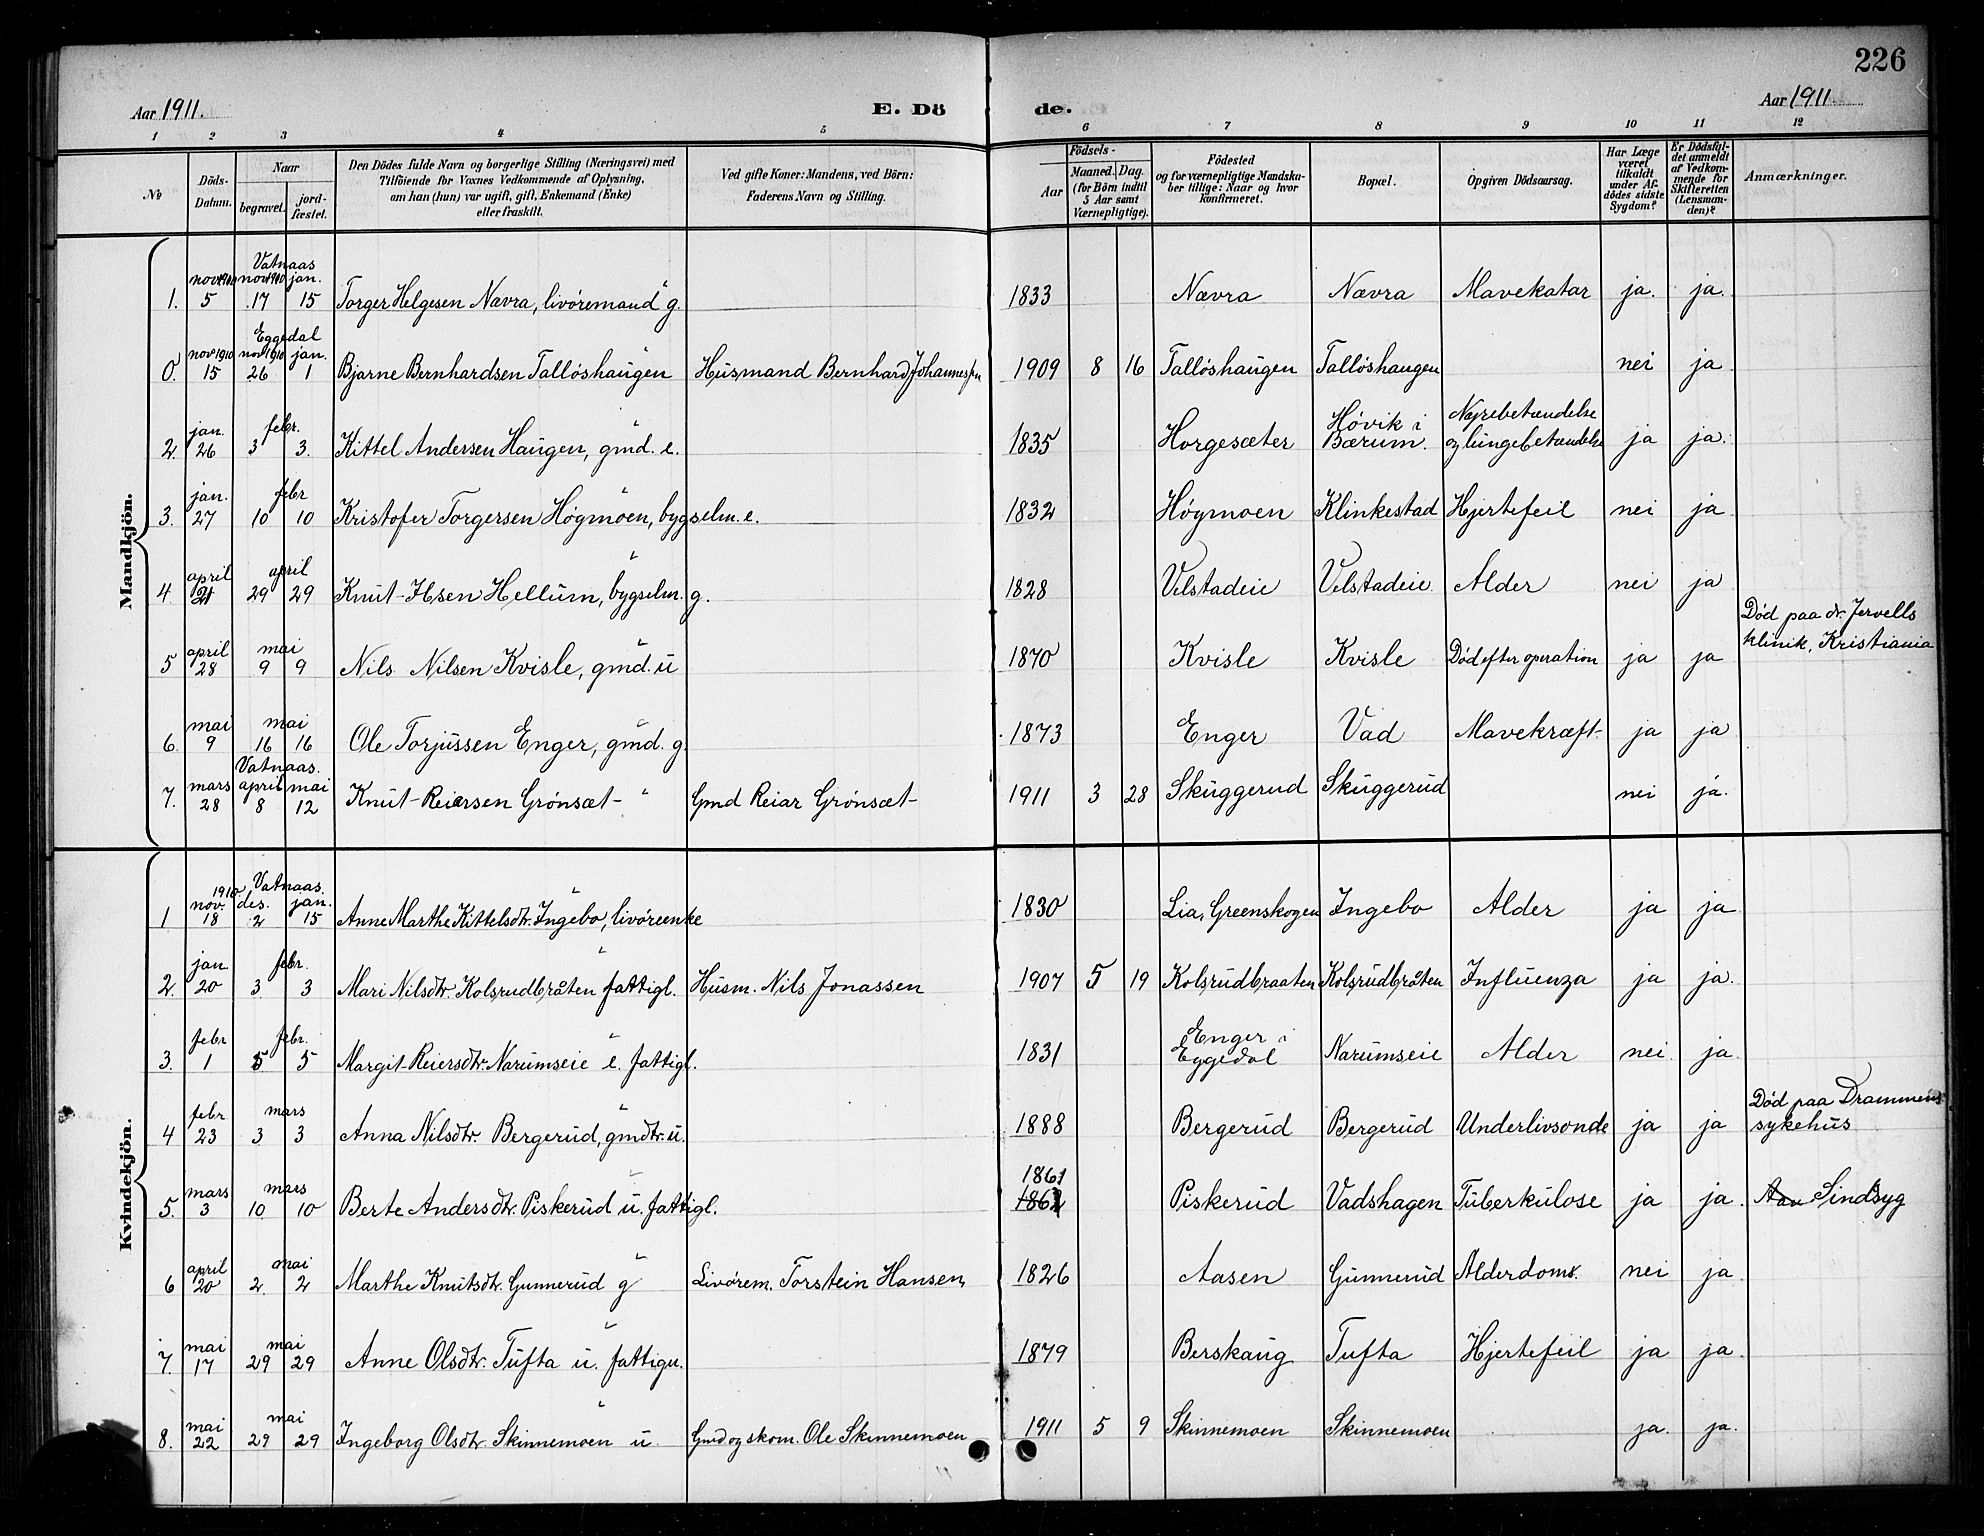 226
Aar 1911. E. Dö de. Aar 1911
1 2 3 4 5 6 7 8 9 10 11 12
№ | Döds-Datum. | Naar begravet. | jord-fæstet. | Den Dödes fulde Navn og borgerlige Stilling (Næringsvei) med Tilföiende for Voxnes Vedkommende af Oplysning, om han (hun) var ugift, gift, Enkemand (Enke) eller fraskilt. | Ved gifte Koner: Mandens, ved Börn: Faderens Navn og Stilling. | Födsels- Aar | Maaned. | Dag. (for Börn indtil 5 Aar samt Værnepligtige). | Födested og for værnepligtige Mandskaber tillige: Naar og hvor konfirmeret. | Bopæl. | Opgiven Dödsaarsag. | Har Læge været tilkaldt under Afdödes sidste Sygdom? | Er Dödsfaldet anmeldt af Vedkommende for Skifteretten (Lensmanden)? | Anmærkninger.
Mandkjön.
Vatnaas
1. | nov 1910 5 | nov 1910 17 | jan. 15 | Torger Helgesen Nævra, livöremand g. | | 1833 | | | Nævra | Nævra | Mavekatar | ja. | ja.
Eggedal
0. | nov 1910 15 | nov 1910 26 | jan. 1 | Bjarne Bernhardsen Tallöshaugen | Husmand Bernhard Johannessen | 1909 | 8 | 16 | Tallöshaugen | Tallöshaugen | | nei | ja
2. | jan. 26 | febr. 3 | 3. | Kittel Andersen Haugen, gmd. e. | | 1835 | | | Horgesæter | Høvik i Bærum. | Nyrebetændelse og lungebetændelse | ja | ja.
3. | jan. 27 | febr 10 | 10 | Kristofer Torgersen Høgmoen, bygselm. e. | | 1832 | | | Høgmoen | Klinkestad | Hjertefeil | nei | ja
4. | april 21 | april 29 | 29 | Knut Ilsen Hellum, bygselm. g. | | 1828 | | | Velstadeie | Velstadeie | Alder | nei | ja
5 | april 28 | mai 9 | 9 | Nils Nilsen Kvisle, gmd. u | | 1870 | | | Kvisle | Kvisle | Død efter operation | ja | ja | Død paa dr. Jervells klinik, Kristiania
6. | mai 9 | mai 16 | 16 | Ole Torjussen Enger, gmd. g | | 1873 | | | Enger | Vad | Mavekræft | ja | ja
Vatnaas.
7. | mars 28 | april 8 | mai 12 | Knut Reiersen Grönsæt | Gmd Reiar Grönsæt | 1911 | 3 | 28 | Skuggerud | Skuggerud | | nei | ja.
Kvindekjön.
Vatnaas.
1 | 1910 nov. 18 | des. 2 | jan. 15 | Anne Marthe Kittelsdtr. Ingebo, livöreenke | | 1830 | | | Lia, Greenskogen | Ingebo | Alder | ja | ja
2. | jan 20 | febr. 3 | 3 | Mari Nilsdtr. Kolsrudbråten fattigl. | Husm. Nils Jonassen | 1907 | 5 | 19 | Kolsrudbraaten | Kolsrudbråten | Influenza | ja | ja.
3. | febr 1 | febr. 5 | 5 | Margit Reiersdtr. Narumseie e. fattigl. | | 1831 | | | Enger i Eggedal | Narumseie | Alder | nei | ja
4 | febr 23 | mars 3 | 3 | Anna Nilsdtr. Bergerud, gmdtr. u. | | 1888 | | | Bergerud | Bergerud | Underlivsonde | ja | ja | Død paa Drammens sykehus
5. | mars 3 | mars 10 | 10 | Berte Andersdtr. Piskerud u. fattigl. | | 1861 1862 | | | Piskerud | Vadshagen | Tuberkulose | ja | ja. | Sindsyg
6 | april 20 | mai 2 | 2 | Marthe Knutsdtr. Gunnerud g | Livörem. Torstein Hansen | 1826 | | | Aasen | Gunnerud | Alderdoms. | nei | ja
7. | mai 17 | mai 29 | 29 | Anne Olsdtr. Tufta u. fattigu. | | 1879 | | | Berskaug | Tufta | Hjertefeil | ja | ja.
8. | mai 22 | mai 29 | 29 | Ingeborg Olsdtr. Skinnemoen u | Gmd og skom. Ole Skinnemoen | 1911 | 5 | 9 | Skinnemoen | Skinnemoen | | ja. | ja.